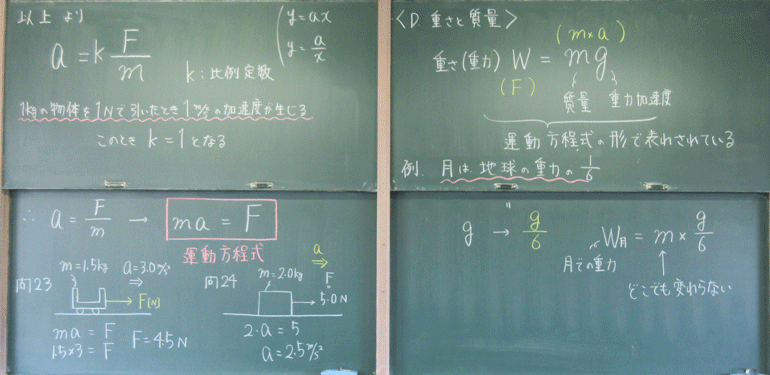 以上より
a = k F/m
(y = ax
y = a/x
k:比例定数
1kgの物体を1Nで引いたとき1m/s²の加速度が生じる
このとき k = 1 となる
∴ a = F/m → ma = F
運動方程式
問23
m=1.5kg a=3.0m/s²
⇒
F[N]
ma = F
1.5×3 = F F=4.5N
問24
m=2.0kg
a
⇒
F
5.0N
2・a = 5
a = 2.5m/s²
〈D. 重さと質量〉
(m×a)
重さ(重力) W = mg
(F) 質量 重力加速度
運動方程式の形で表れされている
例. 月は地球の重力の 1/6
g → g/6
〃
W月 = m × g/6
月での重力
どこでも変わらない